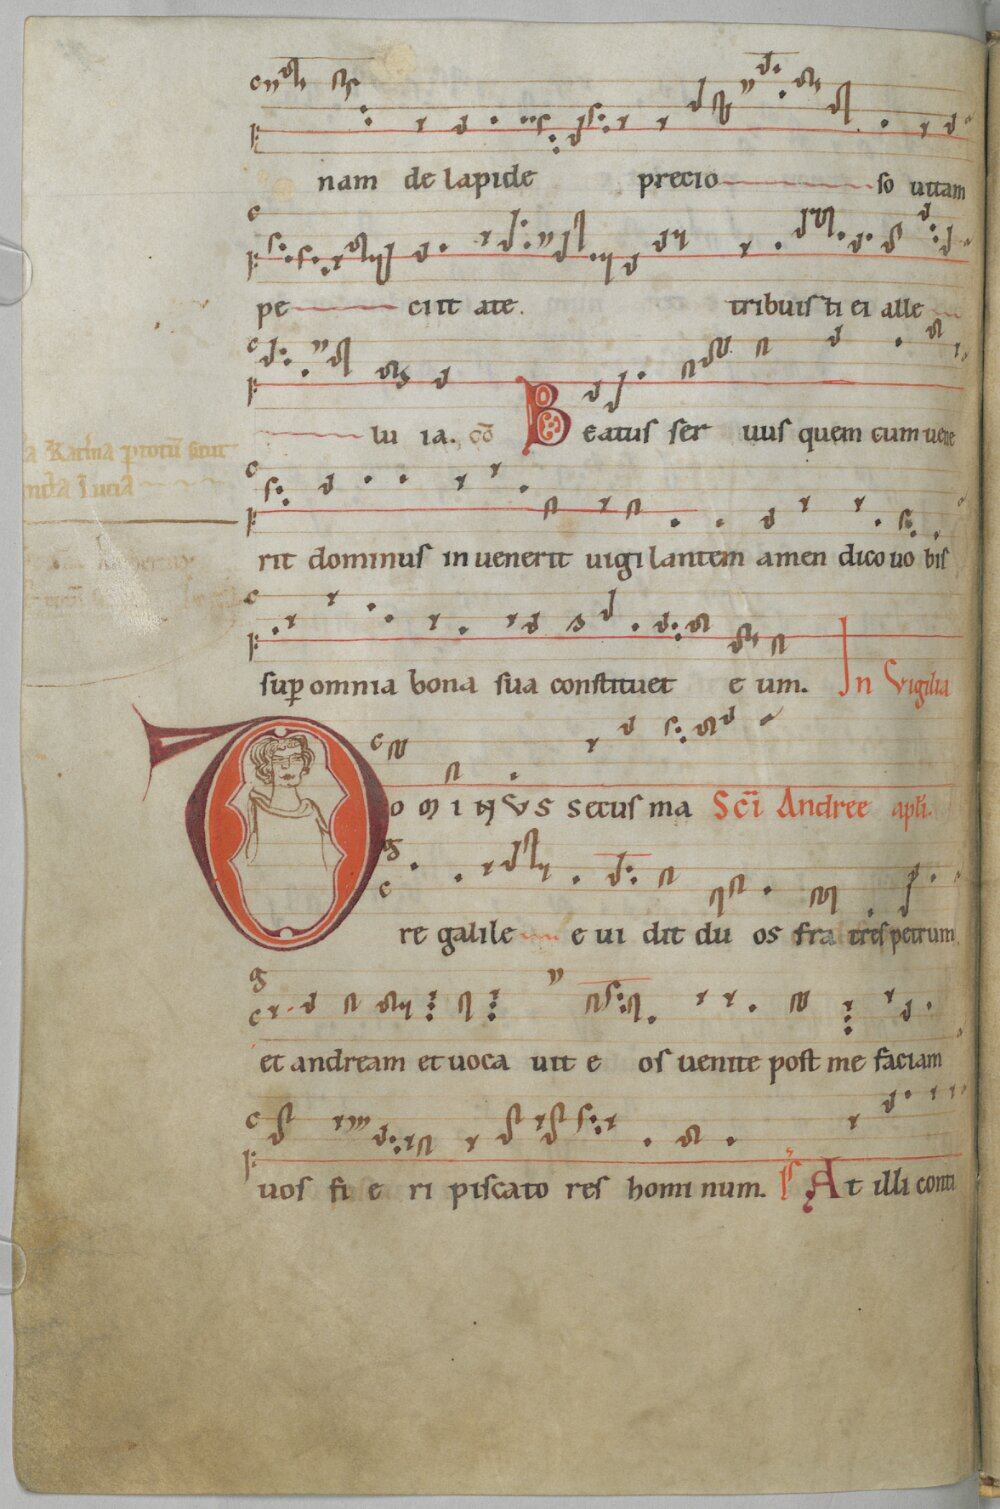 nam de lapide precio so uitam
pe ciit ate. tribuisti ei alle
lu ia. cō Beatus ser uus quem cum uene
rit dominus in uenerit uigi lantem amen dico uo bis
sup omnia bona sua constituet e um. In Vigilia
DOMINVS secus ma Sci Andree apli.
re galile e ui dit du os fra tres petrum
et andream et uoca uit e os uenite post me faciam
uos fi e ri piscato res homi num. Ps At illi conti